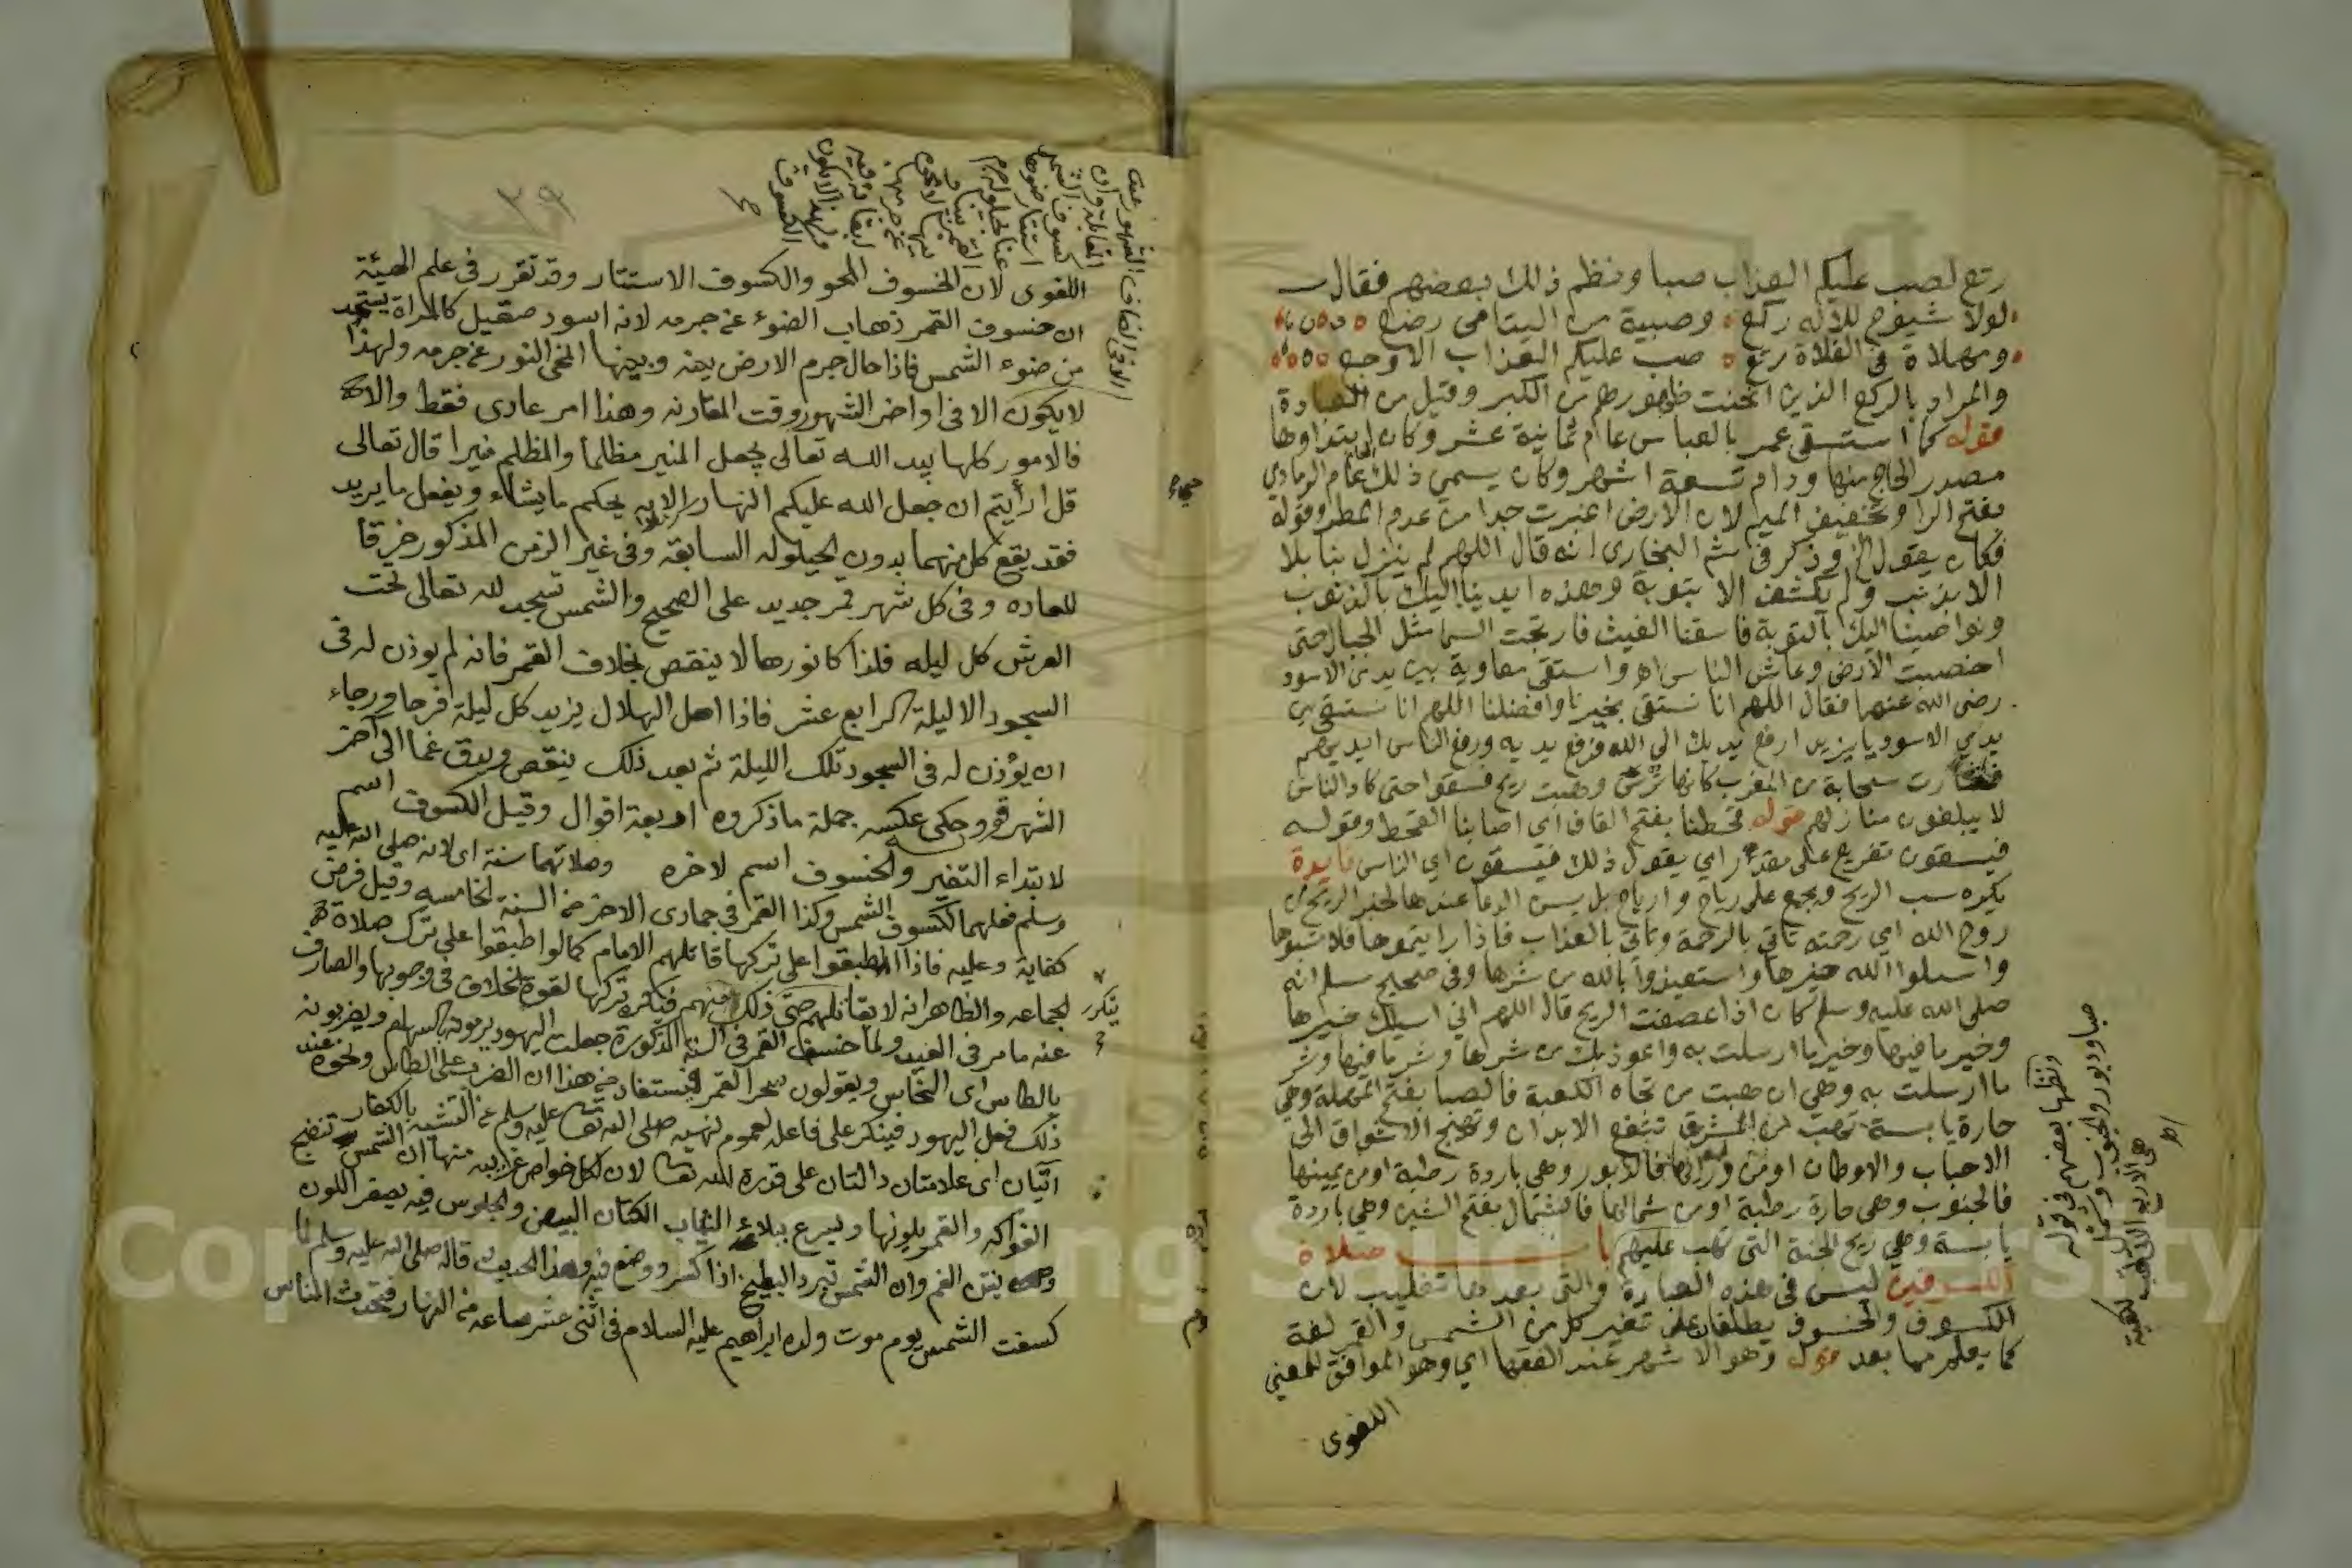 رتع لصب عليكم العذاب صبا ونظم ذلك بعضهم فقال
لولا شيوخ للاله ركع وصبية من اليتامى رضع
ومهملاة فى الفلاة رتع صب عليكم العذاب الاوجع
والمراد بالركع الذين انحنت ظهورهم من الكبر وقيل من العبادة
قوله كما استسقى عمر بالعباس عام ثمانية عشر وكان ابتداوها
مصدر الحاج منها ودام تسعة اشهر وكان يسمي ذلك العام عام الرمادي
بفتح الرا وتخفيف الميم لان الارض اغبرت جدا من عدم المطر وقوله
فكان يقول الخ وذكر فى شم البخارى انه قال اللهم لم ينزل بنا بلا
الا بذنب ولم يكشف الا بتوبة وهذه ايدينا اليك بالذنوب
ونواصينا اليك بالتوبة فاسقنا الغيث فارتجت السما مثل الجبال حتى
اخصبت الارض وعاش الناس اه واستقى معاوية بيزيد بن الاسود
رضى الله عنهما فقال اللهم انا نستقى بخيرنا وافضلنا اللهم انا نستقى بيزيد
بن الاسود يا يزيد ارفع يديك الى الله فرفع يديه ورفع الناس ايديهم
فثارت سحابة من المغرب كانها ترس وهبت ريح فسقوا حتى كاد الناس
لا يبلغون منازلهم قوله قحطنا بفتح القاف اى اصابنا القحط وقوله
فيسقون تفريع على مقدر اي يقول ذلك فيسقون اي الناس فايدة
يكره سب الريح ويجمع على رياح وارياح بل يسن الدعا عندها لخبر الريح من
روح الله اي رحمته تاتى بالرحمة وتاتى بالعذاب فاذا رايتموها فلا تسبوها
واسيلوا الله خيرها واستعيذوا بالله من شرها وفى صحيح مسلم انه
صلى الله عليه وسلم كان اذا عصفت الريح قال اللهم اني اسيلك خيرها
وخير ما فيها وخير ما ارسلت به واعوذ بك من شرها وشر ما فيها وشر
ما ارسلت به وهي ان هبت من تجاه الكعبة فالصبا بفتح المهملة وهي
حارة يابسة تهب من المشرق تنفع الابدان وتهيج الاشواق الى
الاحباب والاوطان او من ورائها فالدبور وهي باردة رطبة او من يمينها
فالجنوب وهى حارة رطبة او من شمالها فالشمال بفتح الشين وهي باردة
يابسة وهي ريح الجنة التى تهب عليهم باب صلاة
الكسوفين ليس فى هذه العبارة والتى بعدها تغليب لان
الكسوف والخسوف يطلقان على تغير كل من الشمس والقمر لغة
كما يعلم مما بعد قوله وهو الاشهر عند الفقها اي وهو الموافق للمعنى
اللغوى
ونظمها بعضهم فى قوله
صبا ودبور والجنوب وشمال
هى الاربع اللاتى تهب لكعبة
اه
اللغوى لان الخسوف المحو والكسوف الاستتار وقد تقرر فى علم الهيئة
ان خسوف القمر ذهاب الضوء عن جرمه لانه اسود صقيل كالمراة يستمد
من ضوء الشمس فاذا حال جرم الارض بينه وبينها انمحى النور عن جرمه ولهذا
لا يكون الا فى اواخر الشهور وقت المقارنه وهذا امر عادى فقط والا
فالامور كلها بيد الله تعالى يجعل المنير مظلما والمظلم منيرا قال تعالى
قل ارأيتم ان جعل الله عليكم النهار الايه يحكم ما يشاء ويفعل ما يريد
فقد يقع كل منهما بدون الحيلوله السابقة وفى غير الزمن المذكور خرقا
للعاده وفى كل شهر قمر جديد على الصحيح والشمس تسجد لله تعالى تحت
العرش كل ليله فلذا كا نورها لا ينقص بخلاف القمر فانه لم يوذن له فى
السجود الا ليلة رابع عشر فاذا اهل الهلال يزيد كل ليلة فرحا ورجاء
ان يؤذن له فى السجود تلك الليلة ثم بعد ذلك ينقص ويدق غما الى اخر
الشهر قوله وحكى عكسه جملة ما ذكروه اربعة اقوال وقيل الكسوف اسم
لابتداء التغير والخسوف اسم لاخره وصلاتهما سنة اى لانه صلى الله عليه
وسلم فعلهما لكسوف الشمس وكذا القمر فى جمادى الاخر من السنة الخامسه وقيل فرض
كفاية وعليه فاذا اطبقوا على تركها قاتلهم الامام كما لو اطبقوا على ترك صلاة
الجماعه والظاهر انه لا يقاتلهم حتى يتكرر ذلك منهم فيكره تركها لقوة الخلاف فى وجوبها والصارف
عنه ما مر فى العيد ولما خسف القمر فى السنة المذكورة جعلت اليهود يرمونه بالسهام ويضربونه
بالطاس اى النحاس ويقولون سحر القمر فيستفاد من هذا ان الضرب على الطاس ونحوه عند
ذلك فعل اليهود فينكر على فاعله لعموم نهيه صلى الله تعا عليه وسلم عن التشبه بالكفار
آيتان اى علامتان دالتان على قدرة الله تعا لان لكل خواص غريبه منها ان الشمس تنضج
الفواكه والقمر يلونها ويسرع ببلاء الثياب الكتان البيض والجلوس فيه يصفر اللون
وينتن الفم وان الشمس تبرد البطيخ اذا كسر ووضع فيه وهذا الحديث قاله صلى الله عليه وسلم لما
كسفت الشمس يوم موت ولده ابراهيم عليه السلام فى اثنى عشر ساعه من النهار فتحدث الناس
٣٩
Copy King Saud University